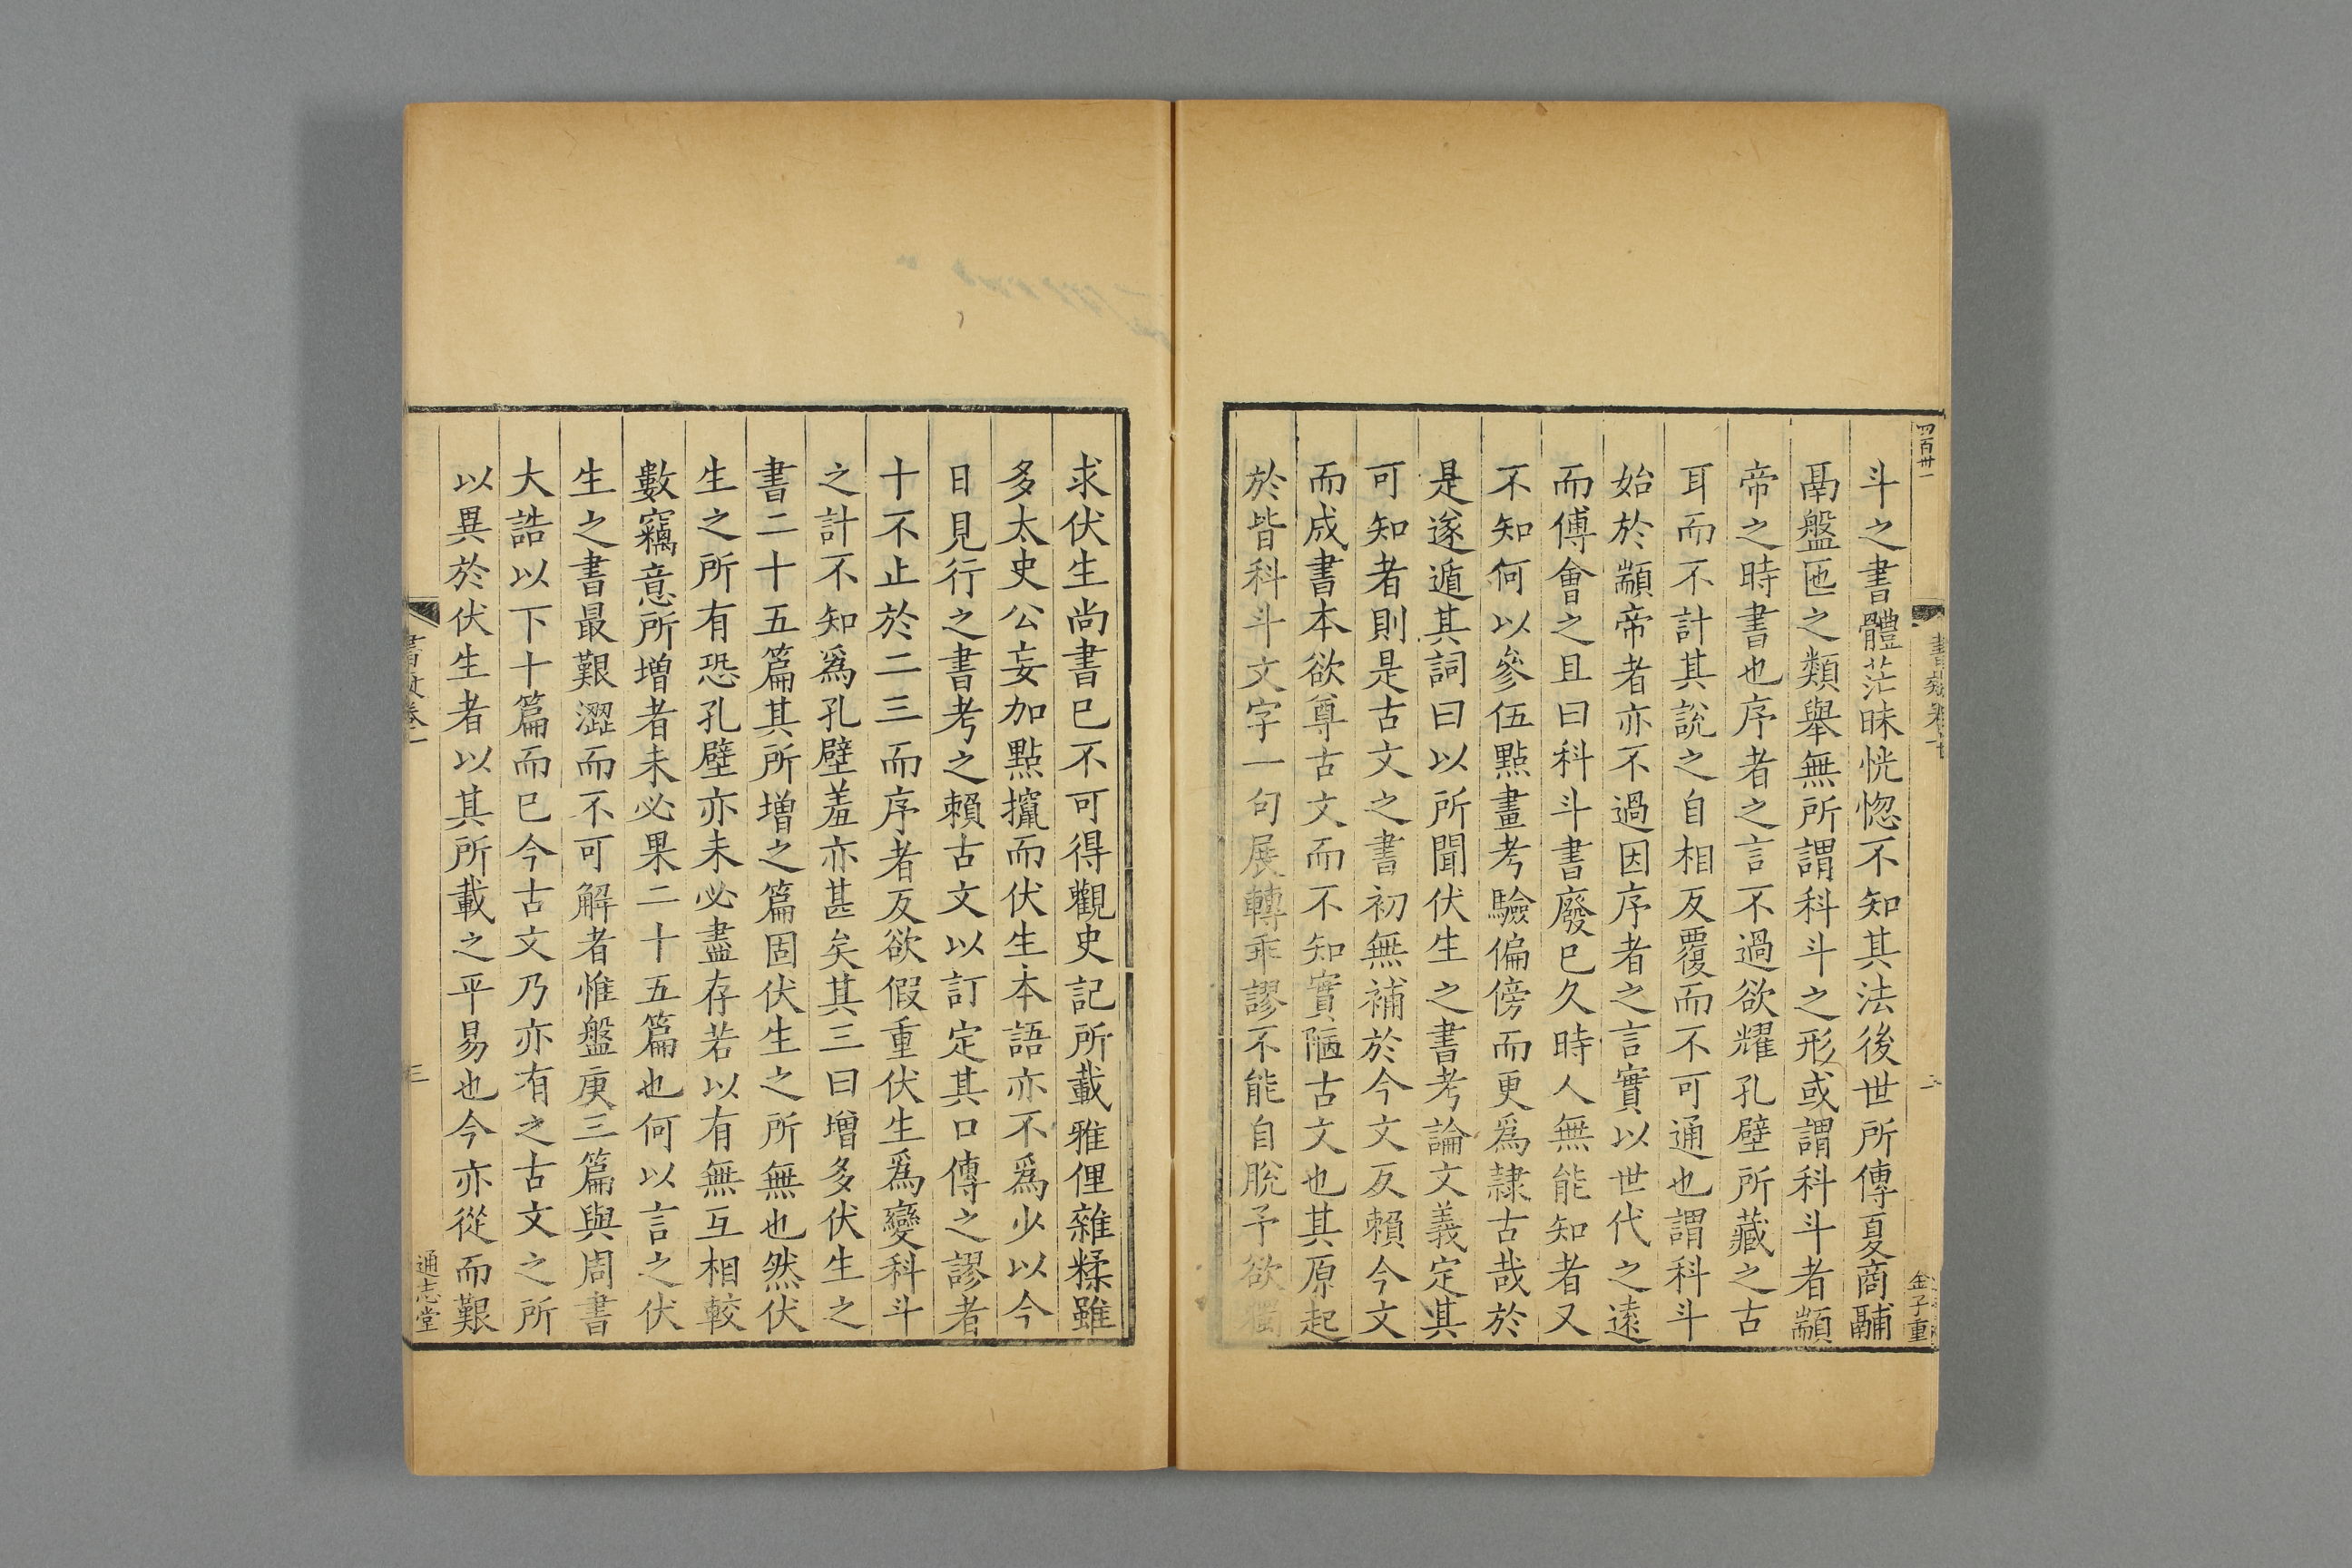 四百卅一
斗之書體茫昧恍惚不知其法後世所傳夏商鬴
鬲盤匜之類舉無所謂科斗之形或謂科斗者顓
帝之時書也序者之言不過欲耀孔壁所藏之古
耳而不計其說之自相反覆而不可通也謂科斗
始於顓帝者亦不過因序者之言實以世代之遠
而傅會之且曰科斗書廢已久時人無能知者又
不知何以參伍點畫考驗偏傍而更爲隷古哉於
是遂遁其詞曰以所聞伏生之書考論文義定其
可知者則是古文之書初無補於今文反賴今文
而成書本欲尊古文而不知實陋古文也其原起
於皆科斗文字一句展轉乖謬不能自脫予欲獨
二
金子重
求伏生尚書已不可得觀史記所載雅俚雜糅雖
多太史公妄加點攛而伏生本語亦不爲少以今
日見行之書考之賴古文以訂定其口傳之謬者
十不止於二三而序者反欲假重伏生爲變科斗
之計不知爲孔壁羞亦甚矣其三曰增多伏生之
書二十五篇其所增之篇固伏生之所無也然伏
生之所有恐孔壁亦未必盡存若以有無互相較
數竊意所增者未必果二十五篇也何以言之伏
生之書最艱澀而不可解者惟盤庚三篇與周書
大誥以下十篇而已今古文乃亦有之古文之所
以異於伏生者以其所載之平易也今亦從而艱
三
通志堂